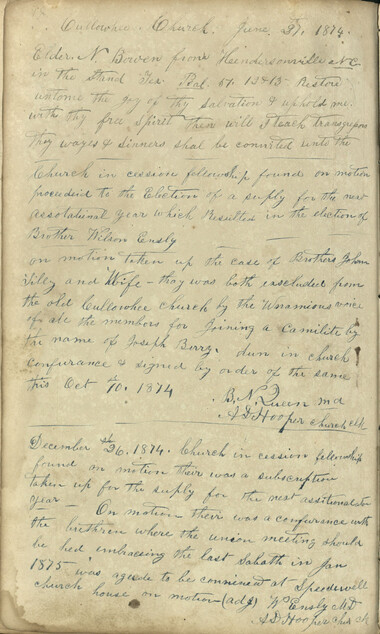 Cullowhee Church. June 27, 1874.
Elder N Bowen from Hendersonville N C
in the Stand Tex. Psal. 51. 12 & 13 Restore
untome the joy of thy salvation & uphold me
with thy free Spirit then will I teach transgressors
thy ways & sinners shal be convirted unto the
Church in cession fellowship found on motion
proceedid to the Election of a supply for the next
assotational year which Resulted in the election of
Brother Wilson Ensly
on motion taken up the case of Brothers Johan
Tilly and Wife - thay was both excluded from
the old Cullowhee church by the Unamious voice
of ale the members for Joining a Camilite by
the name of Joseph Berry. dun in church
Confurance & signed by order of the same
this Oct 10. 1874
B. N. Queen md
A D Hooper church clk
December 26. 1874. Church in cession fellowship
found on motion their was a subscription
taken up for the supply for the next assitional
year On motion their was a confurance with
the brethren where the union meeting should
be hed embrasing the last Sabath in Jan
1875 was agiede to be conninent at Speedwell
church house on motion (adj) Wn Ensly Md
A D Hooper Chu clk